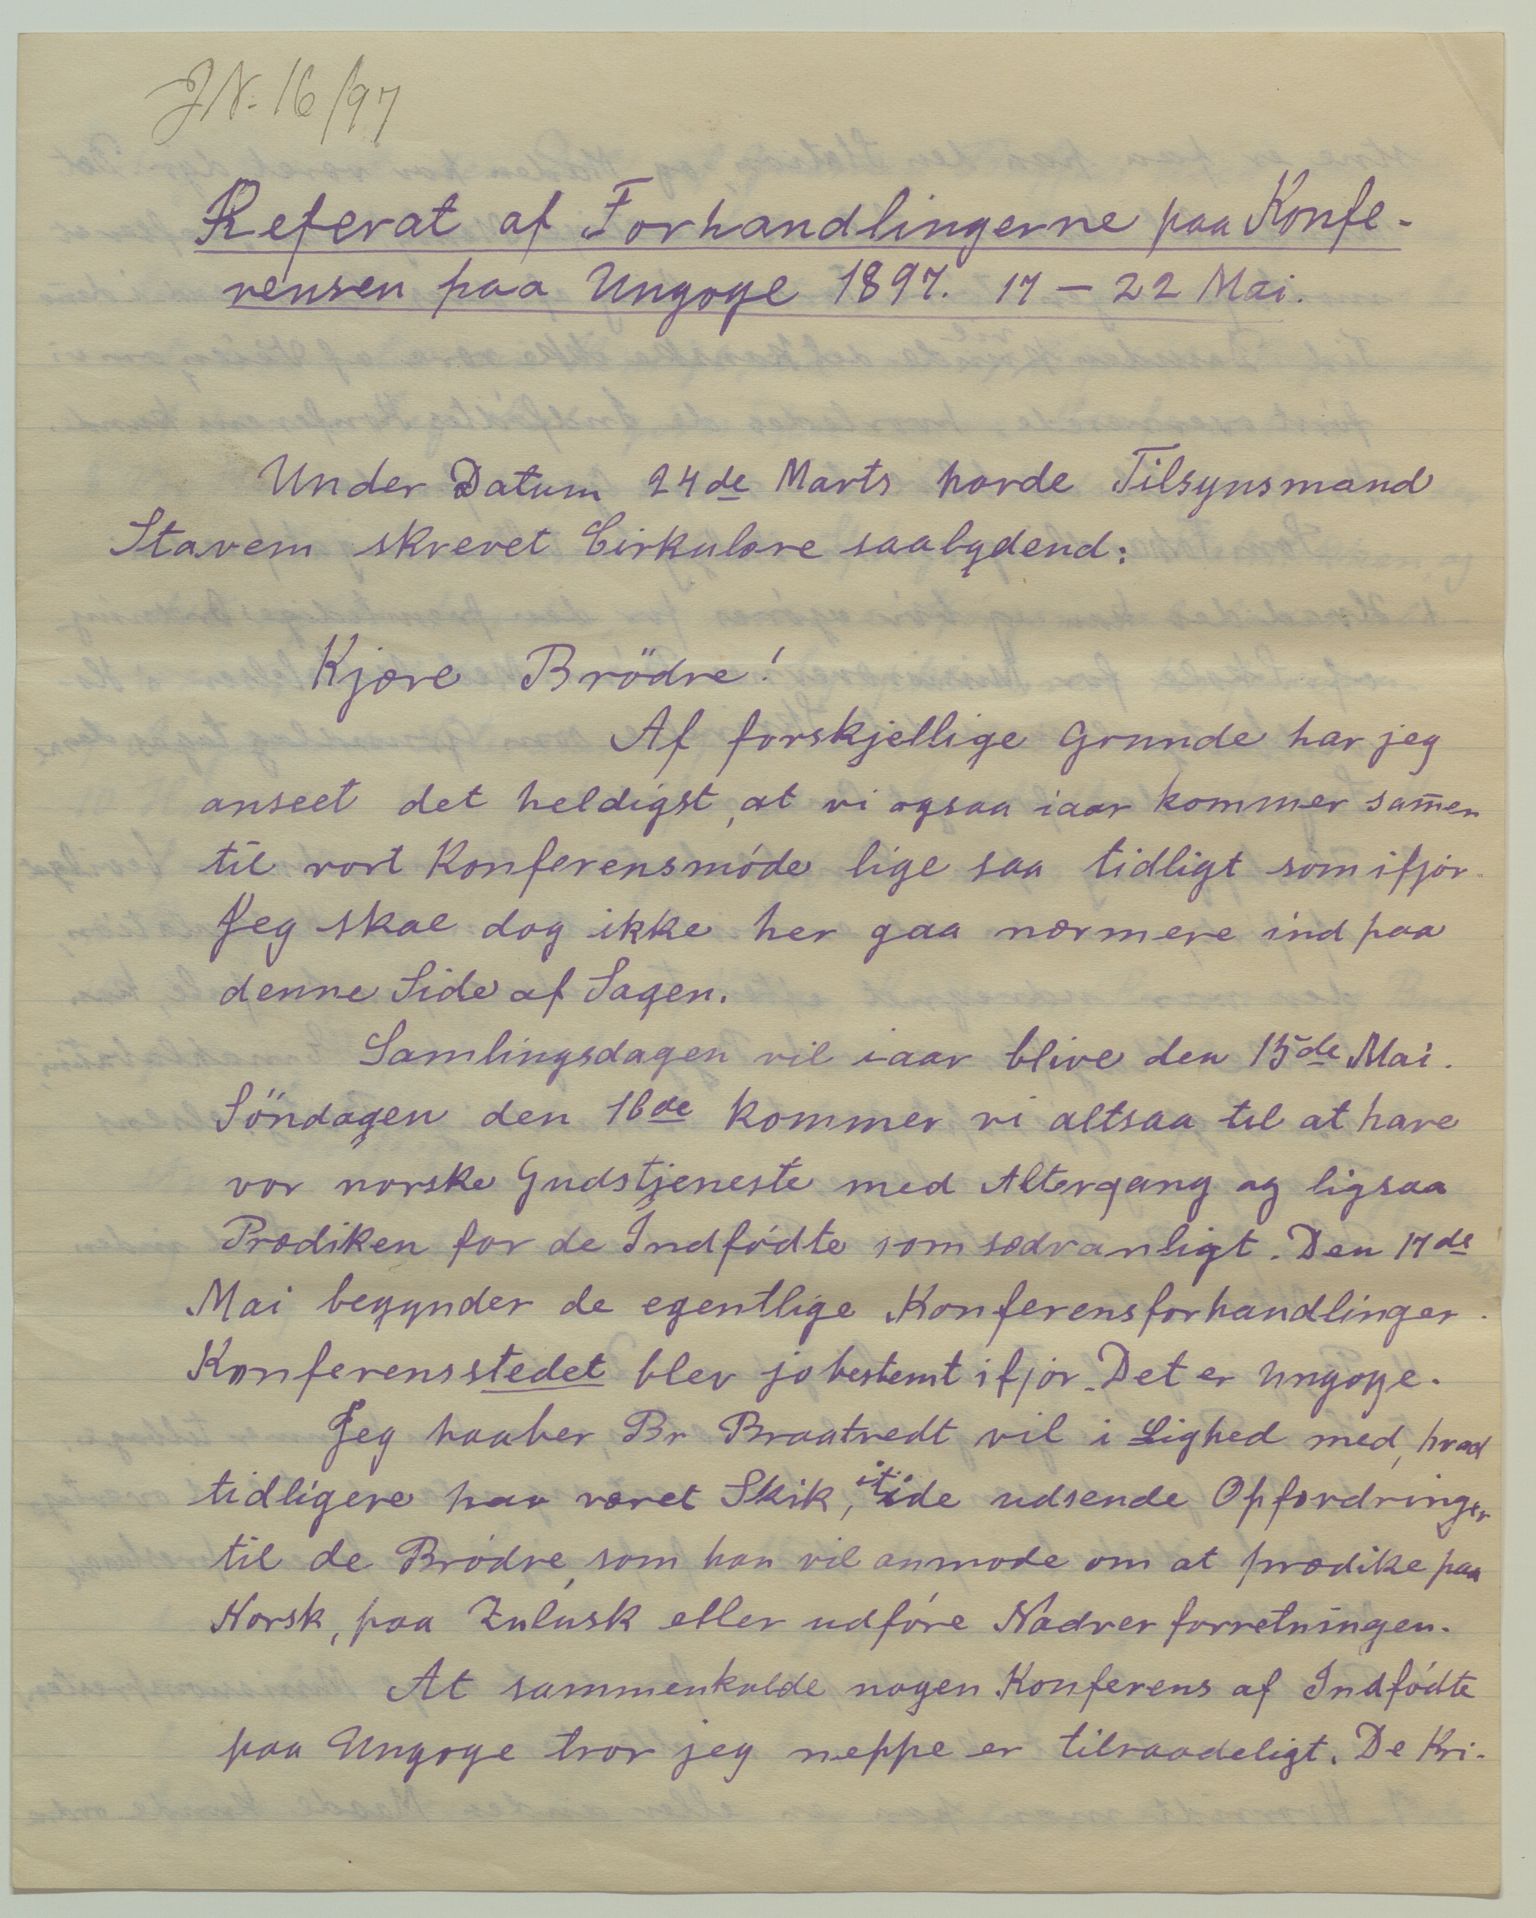 JN. 16/97
Referat af Forhandlingerne paa Konfe-
rensen paa Ungoye 1897. 17 – 22 Mai.
Under Datum 24de Marts havde Tilsynsmand
Stavem skrevet Cirkulære saalydend:
Kjære Brödre!
Af forskjellige Grunde har jeg
anseet det heldigst, at vi ogsaa iaar kommer sam̄en
til vort Konferensmöde lige saa tidligt som ifjor.
Jeg skal dog ikke her gaa nærmere ind paa
denne Side af Sagen.
Samlingsdagen vil iaar blive den 15de Mai.
Söndagen den 16de kommer vi altsaa til at have
vor norske Gudstjeneste med Altergang og ligsaa
Prædiken for de Indfödte som sædvanligt. Den 17de
Mai begynder de egentlige Konferensforhandlinger.
Konferensstedet blev jo bestemt ifjor. Det er Ungoye.
Jeg haaber Br Braatvedt vil i Lighed med, hvad
tidligere har været Skik, itide udsende Opfordringer
til de Brödre, som han vil anmode om at prædike paa
Norsk, paa Zulusk eller udföre Nadverforretningen.
At sammenkalde nogen Konferens af Indfödte
paa Ungoye tror jeg neppe er tilraadeligt. De Kri-